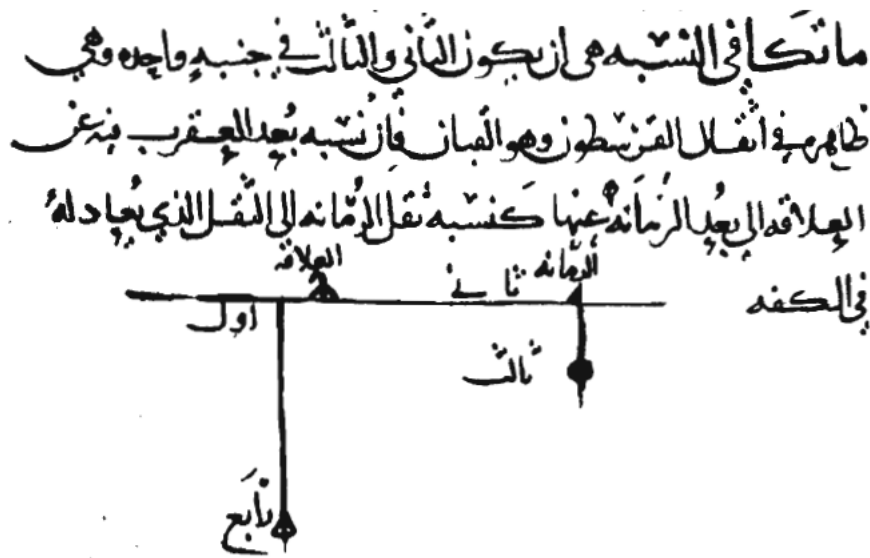 ما تكافى النسبه هى ان يكون الثانى والثالث في جنبه واحده وهي
ظاهره في اثقال القرسطون وهو القبان فان نسبه بُعد العقرب فيه عن
العلاقه الى بُعد الرمانه عنها كنسبه ثقل الرمانه الى الثقل الذي يُعادلهُ
في الكفه
العلاقه
الرمانه
ثاني
اول
ثالث
رابع